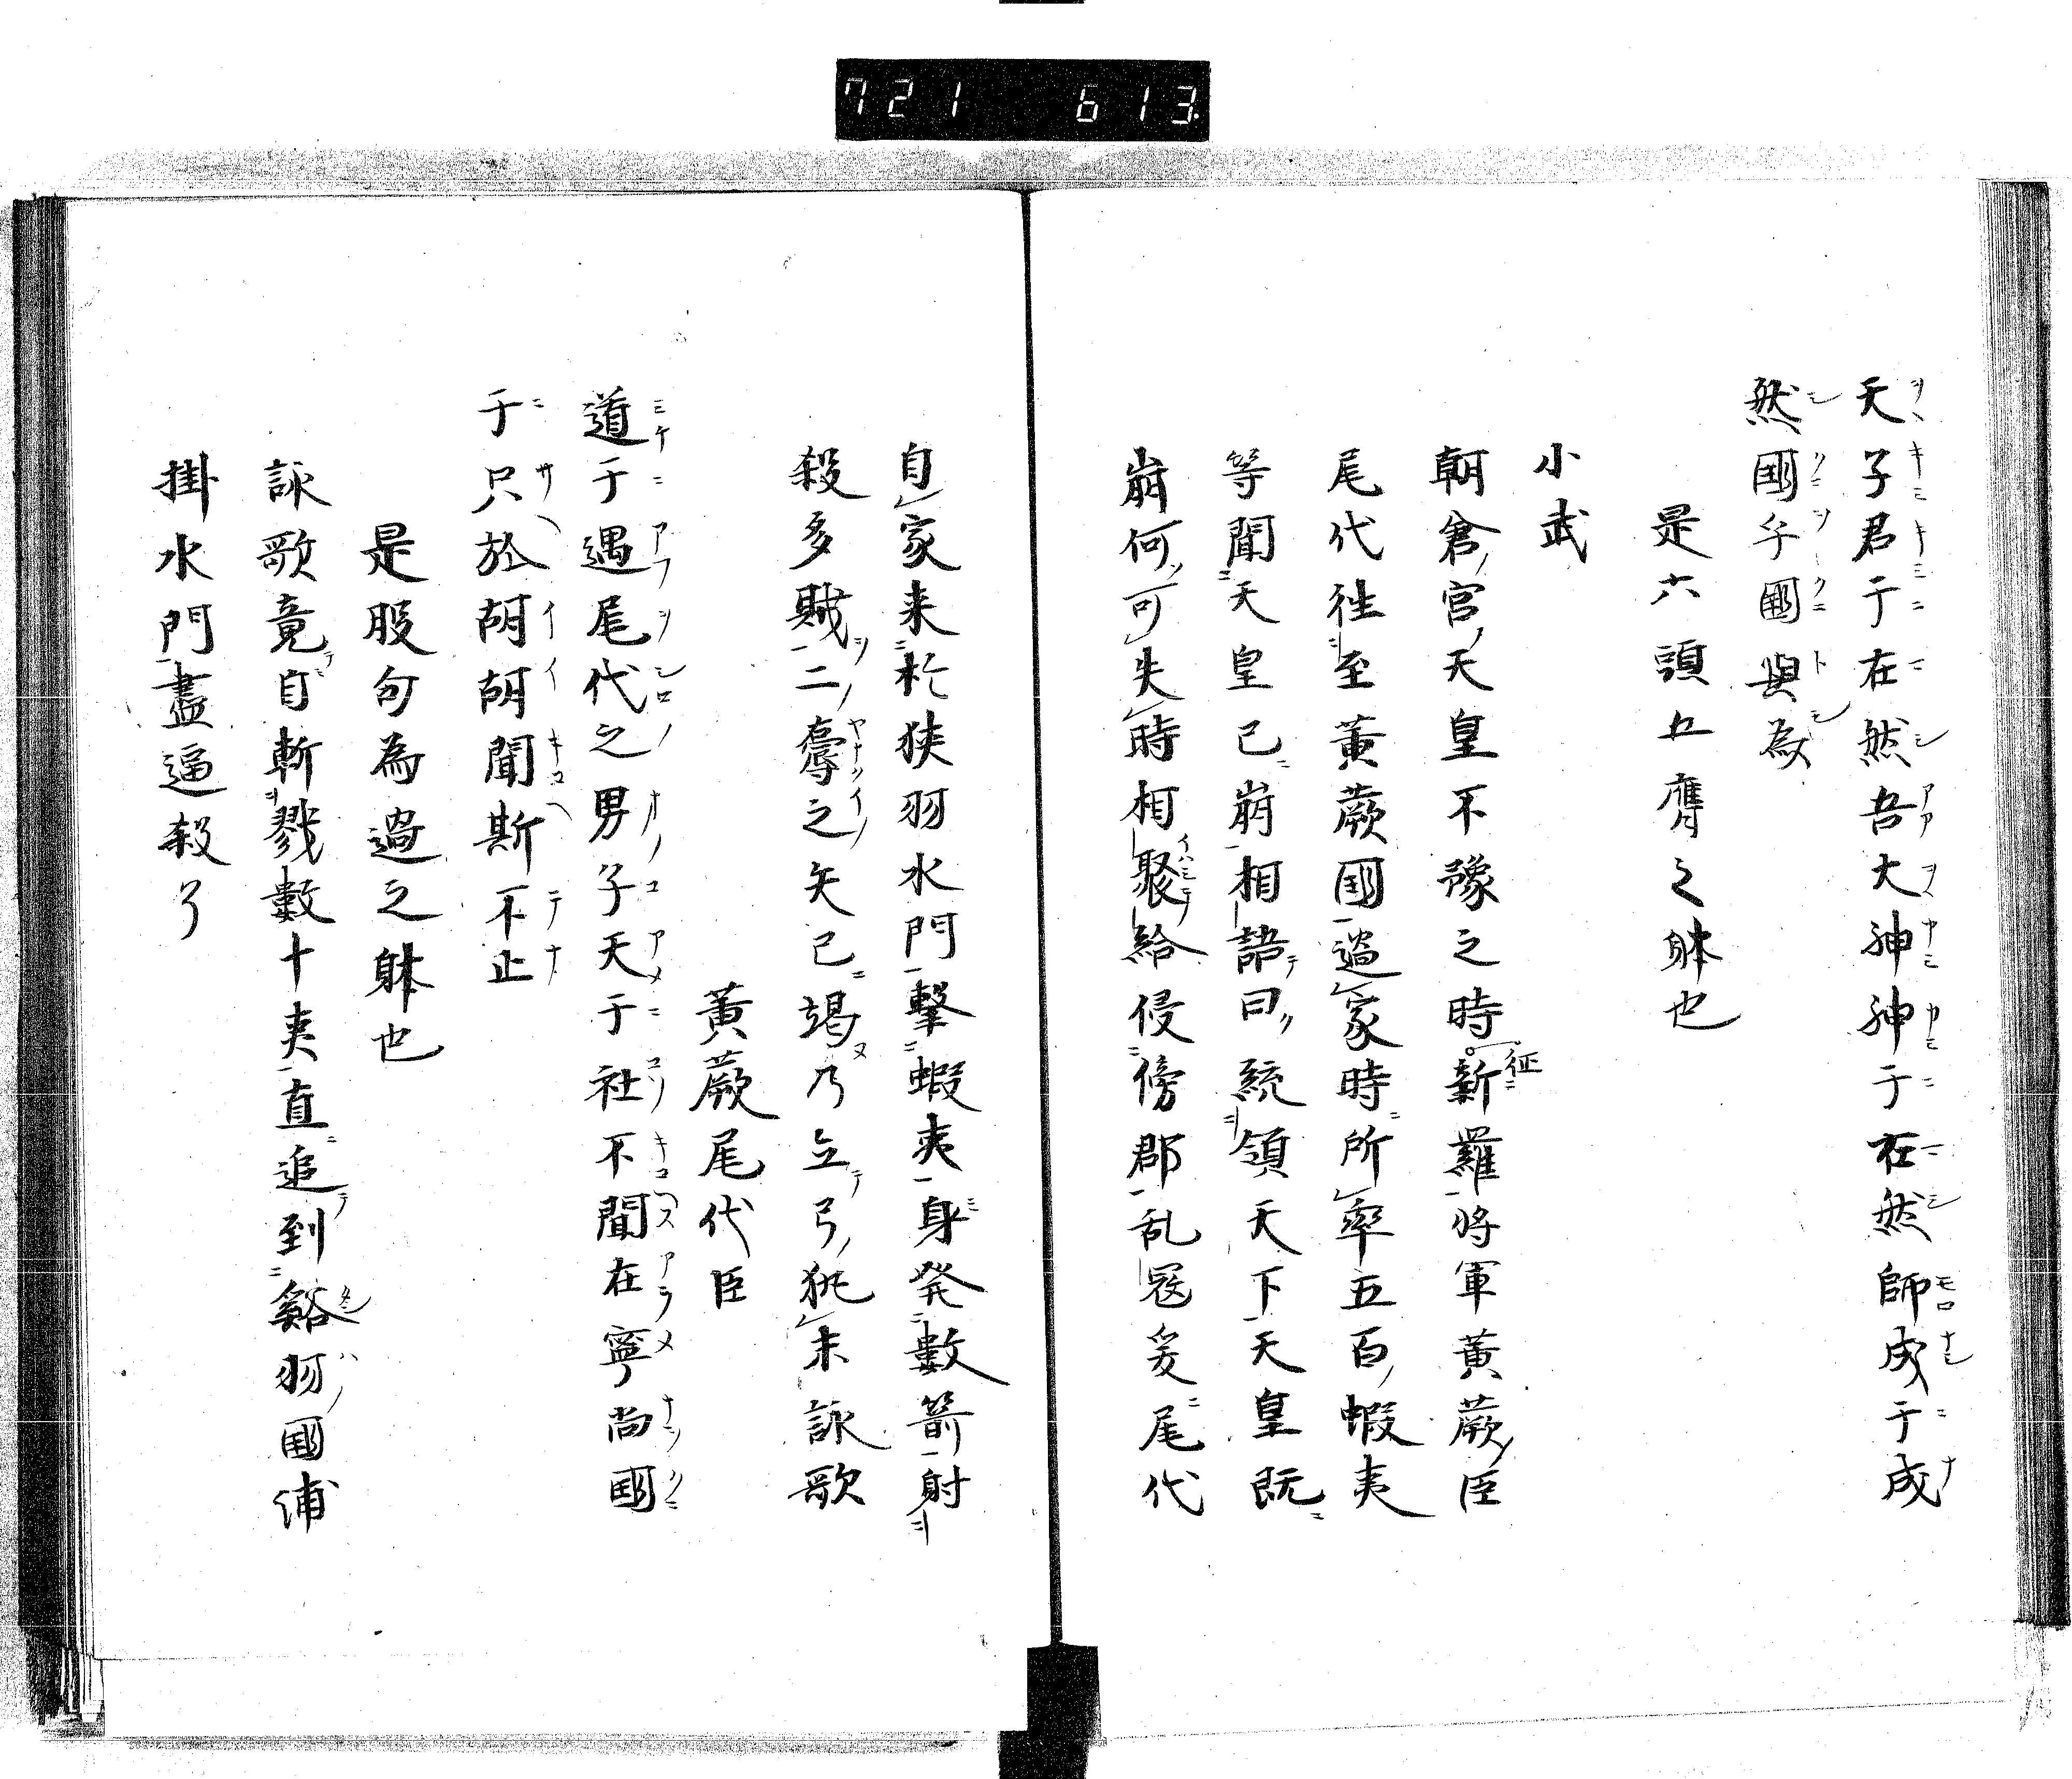 721 613
天子君于在然吾大神神于在然師成于成
然國乎國與為
是六頭五膺之躰也
小武
朝倉宮天皇不豫之時征新羅将軍黄蕨臣
尾代徃至黄蕨國過家時所率五百蝦夷
等聞天皇已崩相語曰統領天下天皇既
崩何可失時相聚給侵傍郡乱冦爰尾代
自家来於狭羽水門撃蝦夷身発數箭射
殺多賊二櫜之矢已竭乃立弓㧡末詠歌
黄蕨尾代臣
道于遇尾代之男子天于社不聞在寧尚國
于只於胡胡聞斯不止
是股句為過之躰也
詠歌竟自斬戮數十夷直追到谿羽國浦
掛水門盡逼殺了